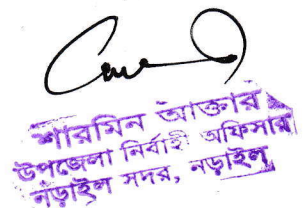 শারমিন আক্তার
উপজেলা নির্বাহী অফিসার
নড়াইল সদর, নড়াইল